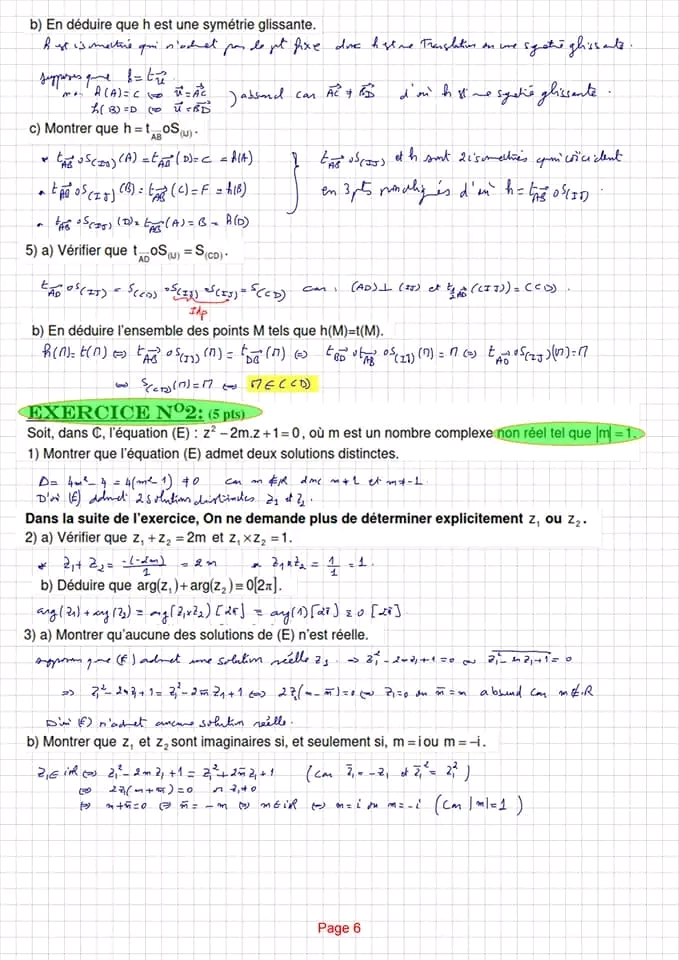 b) En déduire que h est une symétrie glissante.
h est isométrie qui n'admet pas de pt fixe donc h est une Translation ou une symétrie glissante.
supposons que h = t_u⃗
h(A)=C ⇔ u⃗ = AC⃗
h(B)=D ⇔ u⃗ = BD⃗ ) absurd car AC⃗ ≠ BD⃗ d'où h est une symétrie glissante.
c) Montrer que h = t_AB⃗ oS_(IJ).
* t_AB⃗ oS_(IJ) (A) = t_AB⃗ (D) = C = h(A)
* t_AB⃗ oS_(IJ) (B) = t_AB⃗ (C) = F = h(B)
* t_AB⃗ oS_(IJ) (D) = t_AB⃗ (A) = B = h(D)
} t_AB⃗ oS_(IJ) et h sont 2 isométries qui coïcident
en 3 pts non alignés d'où h = t_AB⃗ oS_(IJ).
5) a) Vérifier que t_AD⃗ oS_(IJ) = S_(CD).
t_AD⃗ oS_(IJ) = S_(CD) oS_(IJ) oS_(IJ) = S_(CD) car : (AD)⊥(IJ) et t_½AD⃗ ((IJ)) = (CD).
Idp
b) En déduire l'ensemble des points M tels que h(M)=t(M).
h(M) = t(M) ⇔ t_AB⃗ oS_(IJ) (M) = t_DB⃗ (M) ⇔ t_BD⃗ o t_AB⃗ oS_(IJ) (M) = M ⇔ t_AD⃗ oS_(IJ) (M) = M
⇔ S_(CD) (M) = M ⇔ M ∈ (CD)
EXERCICE N⁰2: (5 pts)
Soit, dans ℂ, l'équation (E) : z² − 2m.z + 1 = 0, où m est un nombre complexe non réel tel que |m| = 1.
1) Montrer que l'équation (E) admet deux solutions distinctes.
Δ = 4m² - 4 = 4(m² - 1) ≠ 0 car m ∉ ℝ donc m ≠ 1 et m ≠ -1.
D'où (E) admet 2 solutions distinctes z₁ et z₂.
Dans la suite de l'exercice, On ne demande plus de déterminer explicitement z₁ ou z₂.
2) a) Vérifier que z₁ + z₂ = 2m et z₁ × z₂ = 1.
* z₁ + z₂ = -(-2m)/1 = 2m * z₁ × z₂ = 1/1 = 1.
b) Déduire que arg(z₁) + arg(z₂) ≡ 0[2π].
arg(z₁) + arg(z₂) ≡ arg(z₁×z₂) [2π] ≡ arg(1) [2π] ≡ 0 [2π].
3) a) Montrer qu'aucune des solutions de (E) n'est réelle.
supposons que (E) admet une solution réelle z₁ ⇒ z₁² - 2mz₁ + 1 = 0 ⇔ z̅₁²̅ ̅-̅ ̅2̅m̅z̅₁̅ ̅+̅ ̅1̅ = 0
⇒ z₁² - 2mz₁ + 1 = z₁² - 2m̅z₁ + 1 ⇔ 2z₁(m - m̅) = 0 ⇔ z₁ = 0 ou m̅ = m absurd car m ∉ ℝ
D'où (E) n'admet aucune solution réelle.
b) Montrer que z₁ et z₂ sont imaginaires si, et seulement si, m = i ou m = −i.
z₁ ∈ iℝ ⇔ z₁² - 2mz₁ + 1 = z₁² + 2m̅z₁ + 1 (car z̅₁ = -z₁ et z̅₁² = z₁²)
⇔ 2z₁(m + m̅) = 0 or z₁ ≠ 0
⇔ m + m̅ = 0 ⇔ m̅ = -m ⇔ m ∈ iℝ ⇔ m = i ou m = -i (car |m| = 1)
Page 6